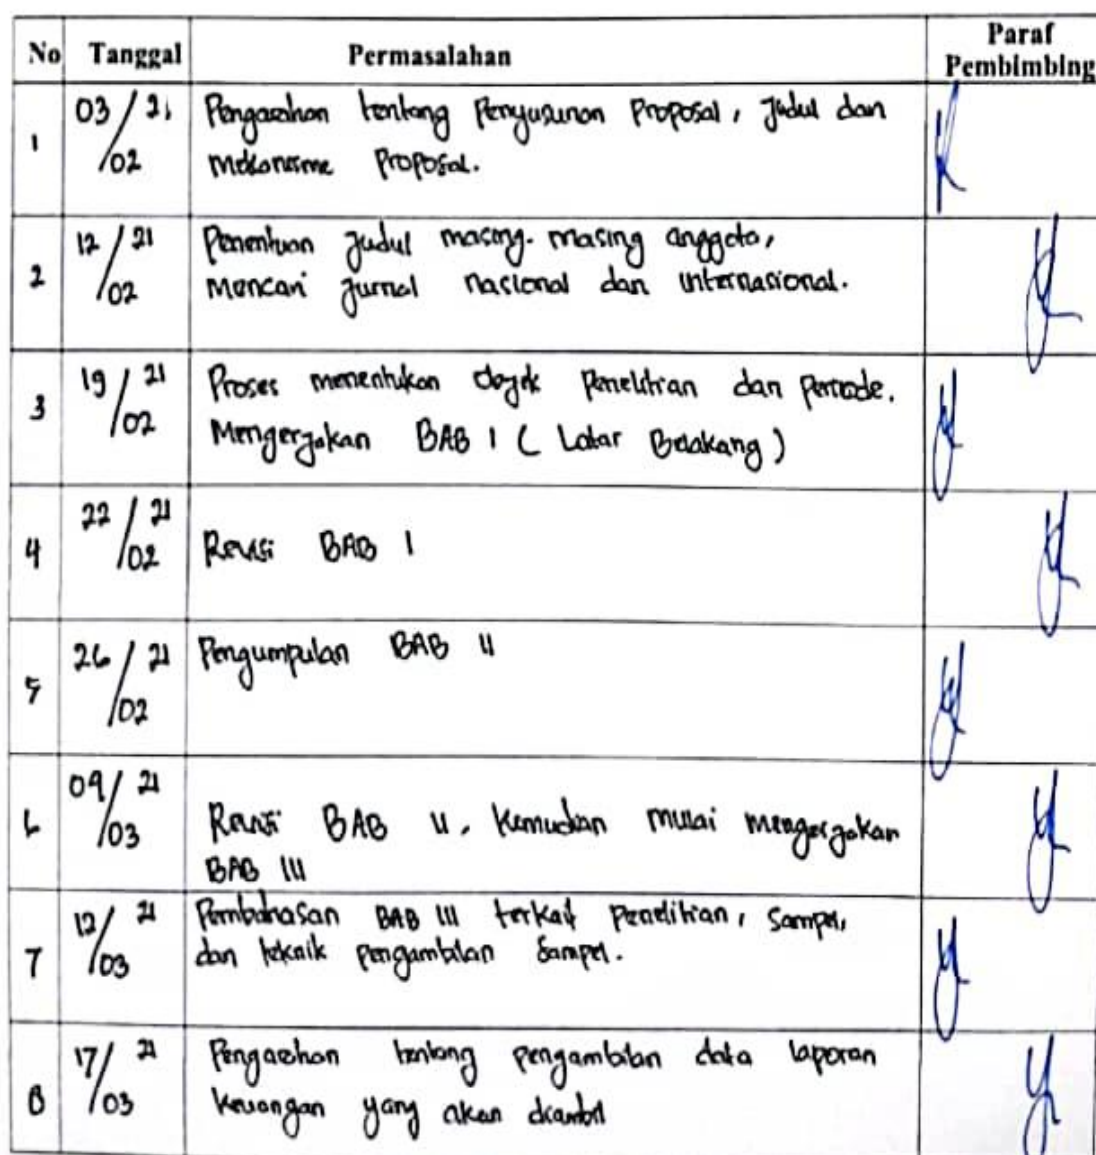 No Tanggal Permasalahan Paraf Pembimbing
1 03/02 21 Pengarahan tentang Penyusunan Proposal, Judul dan
mekanisme Proposal.
2 12/02 21 Penentuan Judul masing-masing anggota,
Mencari Jurnal nasional dan internasional.
3 19/02 21 Proses menentukan objek Penelitian dan periode.
Mengerjakan BAB I ( Latar Belakang )
4 22/02 21 Revisi BAB I
5 26/02 21 Pengumpulan BAB II
6 09/03 21 Revisi BAB II, Kemudian mulai mengerjakan
BAB III
7 12/03 21 Pembahasan BAB III terkait penelitian, Sampel,
dan teknik pengambilan Sampel.
8 17/03 21 Pengarahan tentang pengambilan data laporan
keuangan yang akan diambil